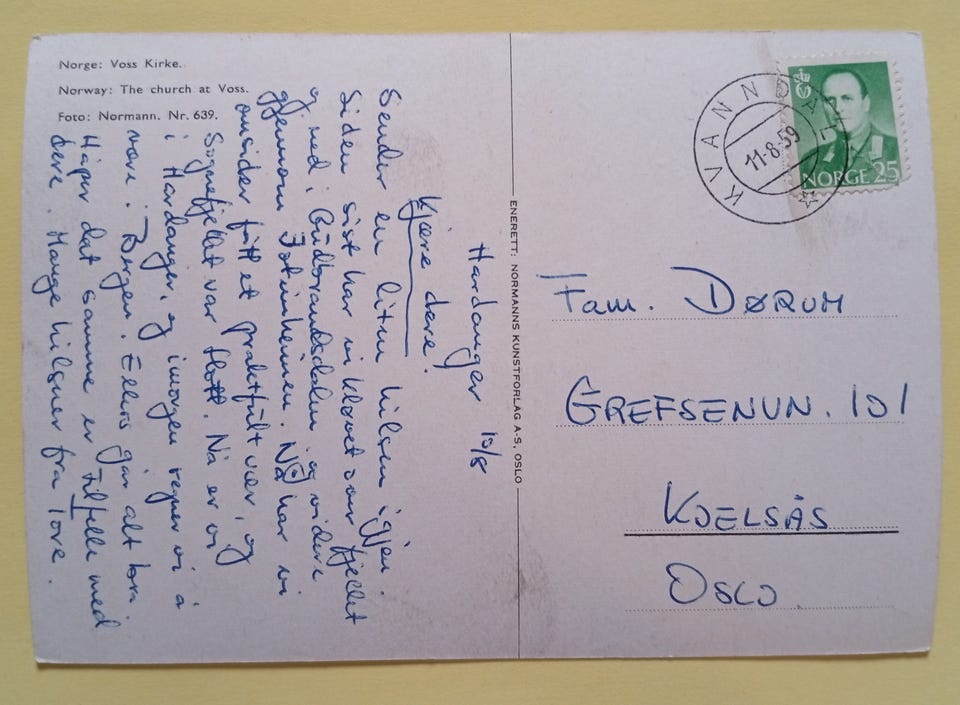 Norge: Voss Kirke.
Norway: The church at Voss.
Foto: Normann. Nr. 639.
Hardanger 10/8
Kjære dere!
Sender en liten hilsen igjen.
Siden sist har vi kløvet over fjellet
og ned i Gudbrandsdalen og videre
gjennom Jotunheimen. Nå har vi
omsider fått et praktfult vær, og
Sognefjellet var flott. Nå er vi
i Hardanger, og imorgen regner vi å
være i Bergen. Ellers går alt bra
Håper det samme er tilfelle med
dere. Mange hilsner fra Tove.
ENERETT: NORMANNS KUNSTFORLAG A-S, OSLO
KVANNDAL
11-8-59
NORGE 25
Fam. DØRUM
GREFSENVN. 101
KJELSÅS
OSLO